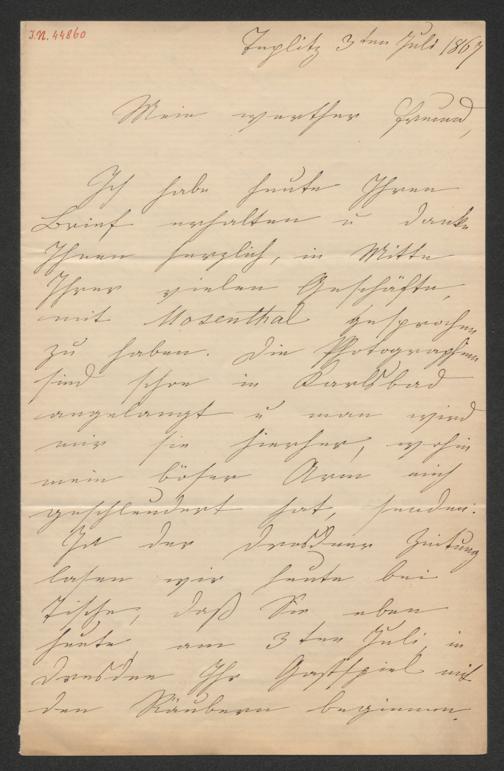 J.N. 44860
Teplitz 3ten Juli 1867
Mein werther Freund,
Ich habe heute Ihren
Brief erhalten u danke
Ihnen herzlich, in Mitte
Ihrer vielen Geschäfte,
mit Mosenthal gesprochen
zu haben. Die Photographien
sind schon in Karlsbad
angelangt u man wird
mir sie hierher, wohin
mein böser Arm mich
geschleudert hat, senden.
In der Dresdner Zeitung
lasen wir heute bei
Tische, daß Sie eben
heute, am 3ten Juli, in
Dresden Ihr Gastspiel mit
den Räubern beginnen.